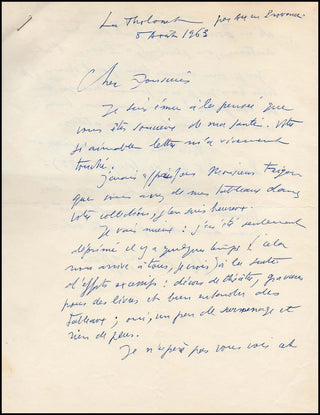 Le Tholonet par Aix en Provence
5 Août 1963
Cher Monsieur
Je suis ému à la pensée que
vous êtes soucieux de ma santé. Votre
si aimable lettre m'a vivement
touché.
J'avais appris par Monsieur
que vous avez de mes tableaux dans
votre collection, j'en suis heureux.
Je vais mieux : j'ai été seulement
déprimé il y a quelques temps (cela
nous arrive à tous, je crois) à la suite
d'efforts excessifs : décors de théâtre, gravures
pour des livres et bien entendu des
tableaux ; oui, un peu de surmenage et
rien de plus.
Je n'espère pas vous voir